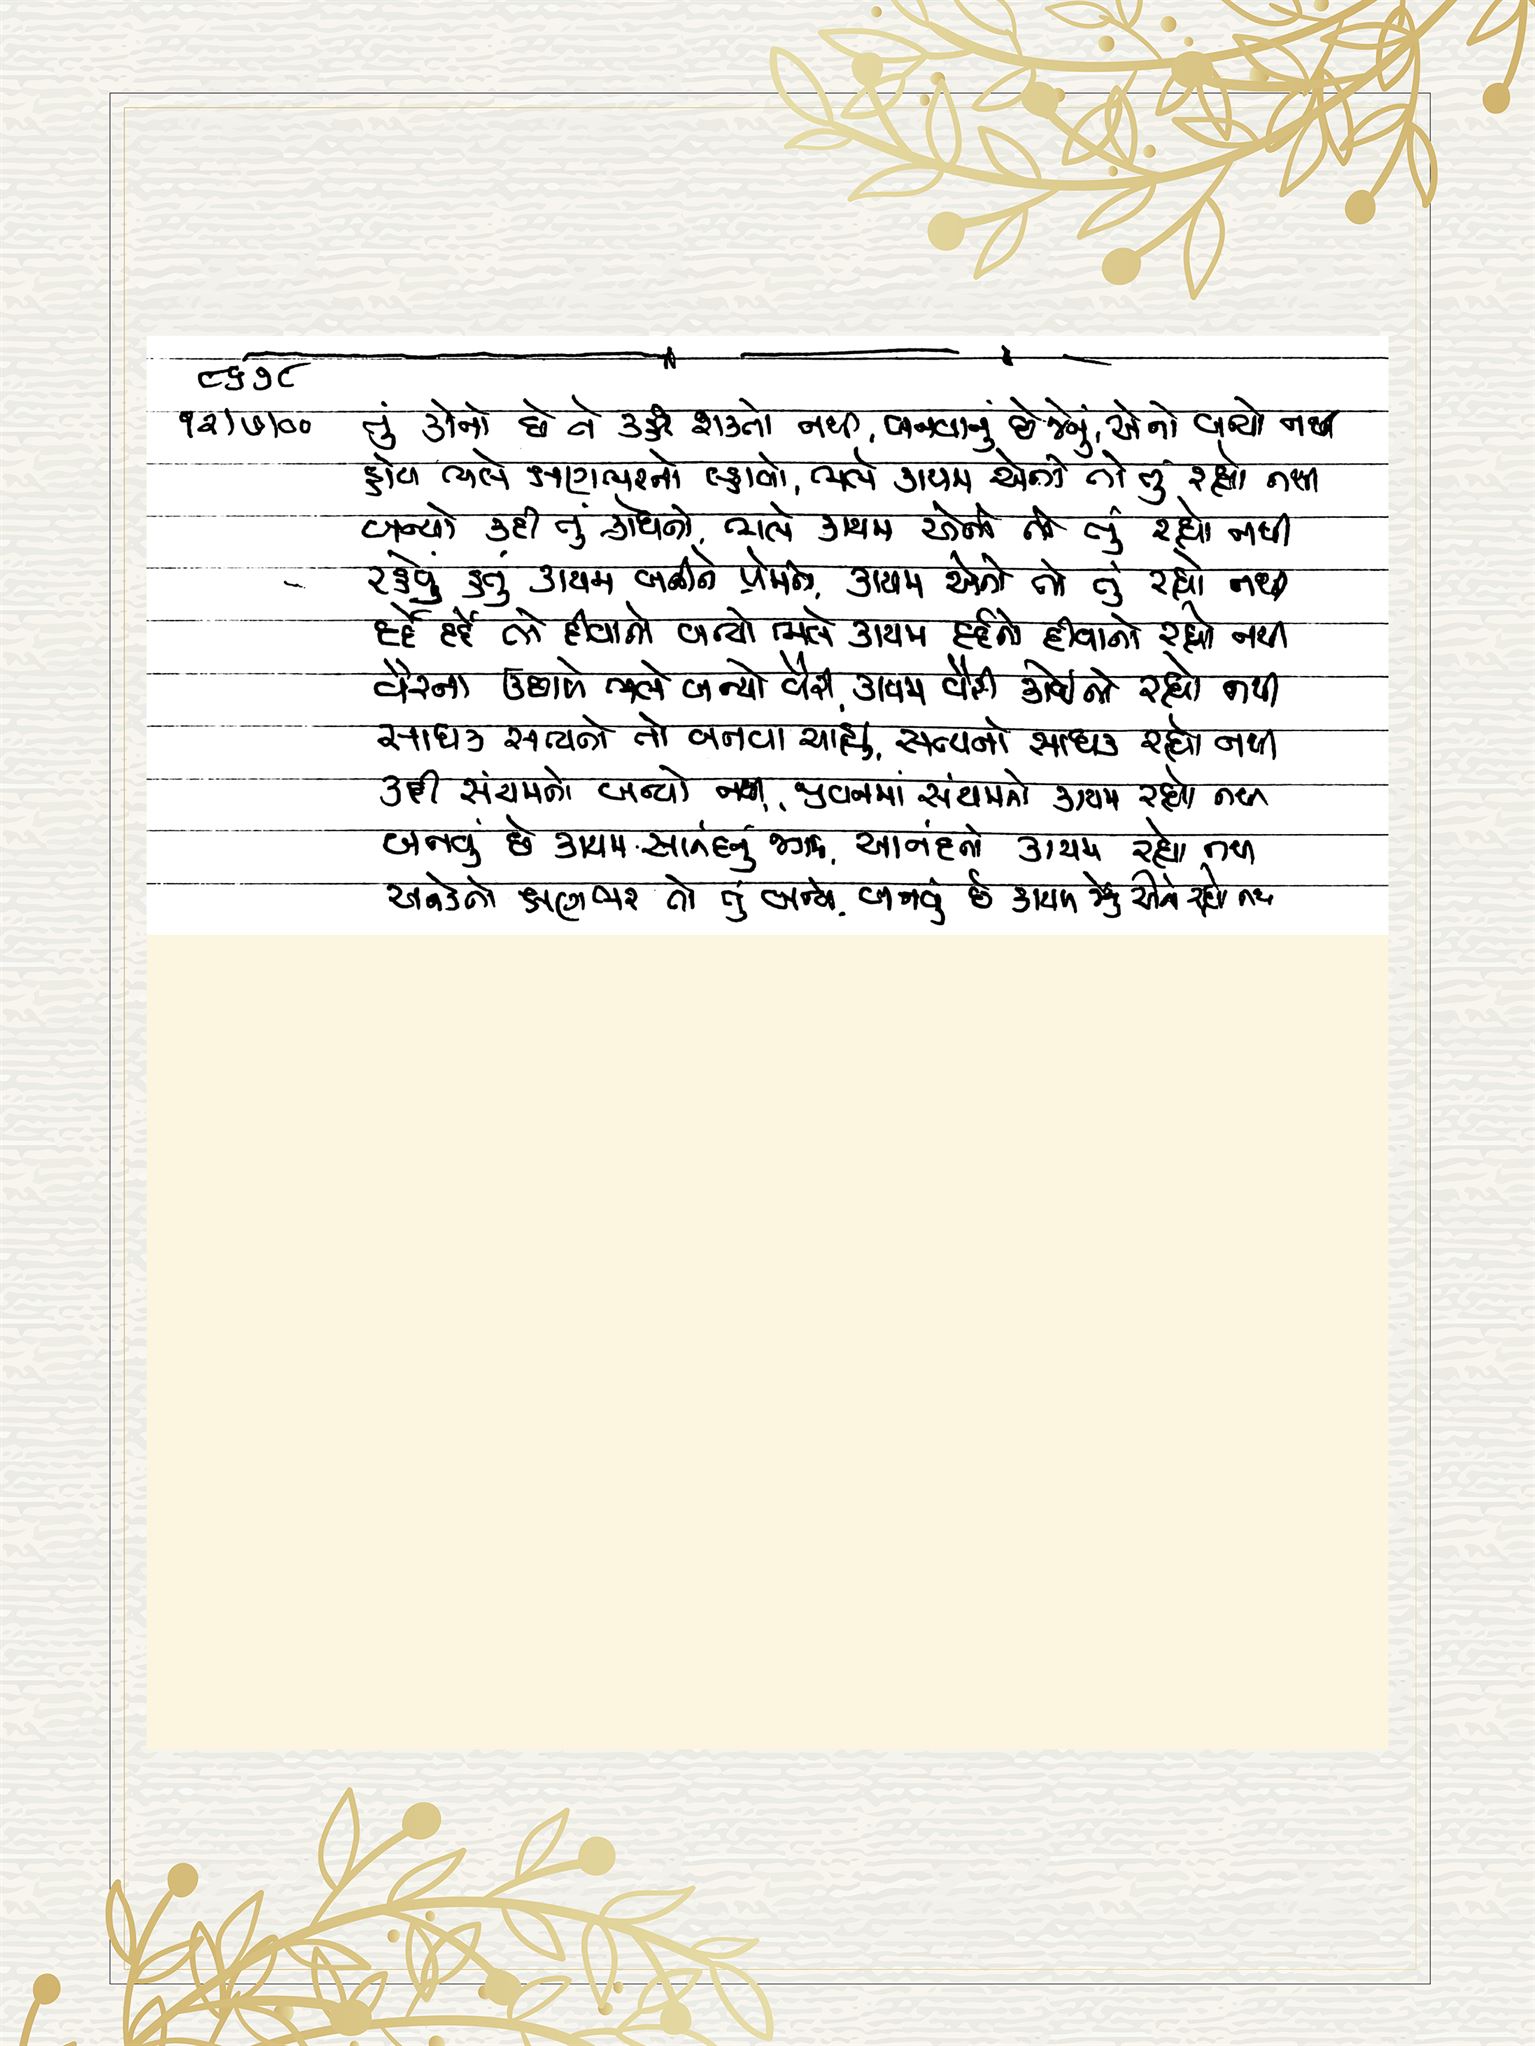 ૮૬૭૮
૧૨/૭/૦૦ તું કોનો છે તે કહી શકતો નથી, બનવાનું છે જેનું, એનો બન્યો નથી
હોય ભલે ક્ષણભરનો લ્હાવો, ભલે કાયમ એનો તો તું રહ્યો નથી
બન્યો કદી તું ક્રોધનો, ભલે કાયમ એનો તો તું રહ્યો નથી
રહેવું હતું કાયમ બનીને પ્રેમનો, કાયમ એનો તો તું રહ્યો નથી
દર્દે દર્દે તો દીવાનો બન્યો ભલે કાયમ દર્દનો દીવાનો રહ્યો નથી
વૈરના ઉછાળે ભલે બન્યો વૈરી, કાયમ વૈરી કોઈનો રહ્યો નથી
સાધક સત્યનો તો બનવા ચાહ્યું, સત્યનો સાધક રહ્યો નથી
કદી સંયમનો બન્યો નથી, જીવનમાં સંયમનો કાયમ રહ્યો નથી
બનવું છે કાયમ આનંદનું ઝાડ, આનંદનો કાયમ રહ્યો નથી
અનેકનો ક્ષણભર તો તું બન્યો, બનવું છે કાયમ જેનું રીતે રહ્યો નથી